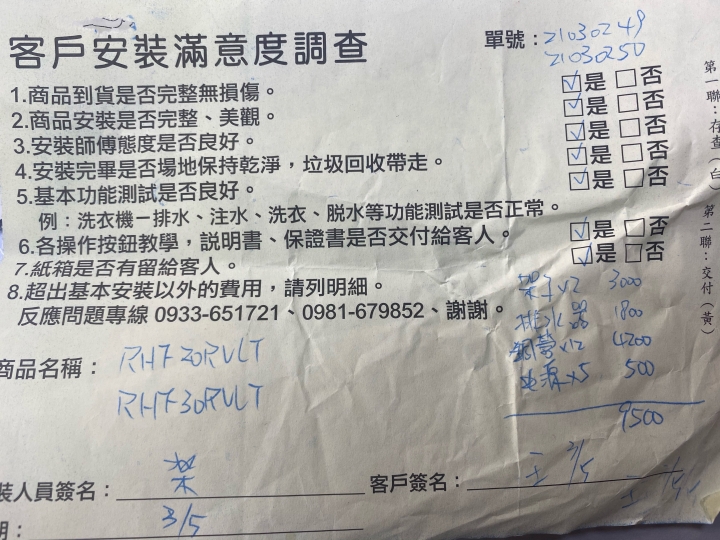 客戶安裝滿意度調查
單號：21030249
21030250
1.商品到貨是否完整無損傷。 ☑是 □否
2.商品安裝是否完整、美觀。 ☑是 □否
3.安裝師傅態度是否良好。 ☑是 □否
4.安裝完畢是否場地保持乾淨，垃圾回收帶走。 ☑是 □否
5.基本功能測試是否良好。 ☑是 □否
例：洗衣機－排水、注水、洗衣、脫水等功能測試是否正常。
6.各操作按鈕教學，說明書、保證書是否交付給客人。 ☑是 □否
7.紙箱是否有留給客人。 ☑是 □否
8.超出基本安裝以外的費用，請列明細。
反應問題專線 0933-651721、0981-679852、謝謝。
架子x2 3000
排水器 1800
銅管x12 4200
電源x5 500
9500
商品名稱：RHF20RVLT
RHF30RVLT
裝人員簽名：
客戶簽名：王 3/5
期：3/5
第一聯：存查（白）第二聯：交付（黃）